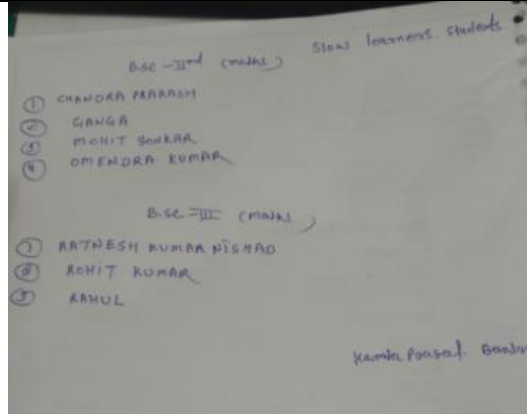 Slow learners students
B.sc - IInd (maths)
① CHANDRA PRAKASH
② GANGA
③ MOHIT SONKAR
④ OMENDRA KUMAR
B.sc - III (maths)
① RATNESH KUMAR NISHAD
② ROHIT KUMAR
③ RAHUL
Kamla Prasad